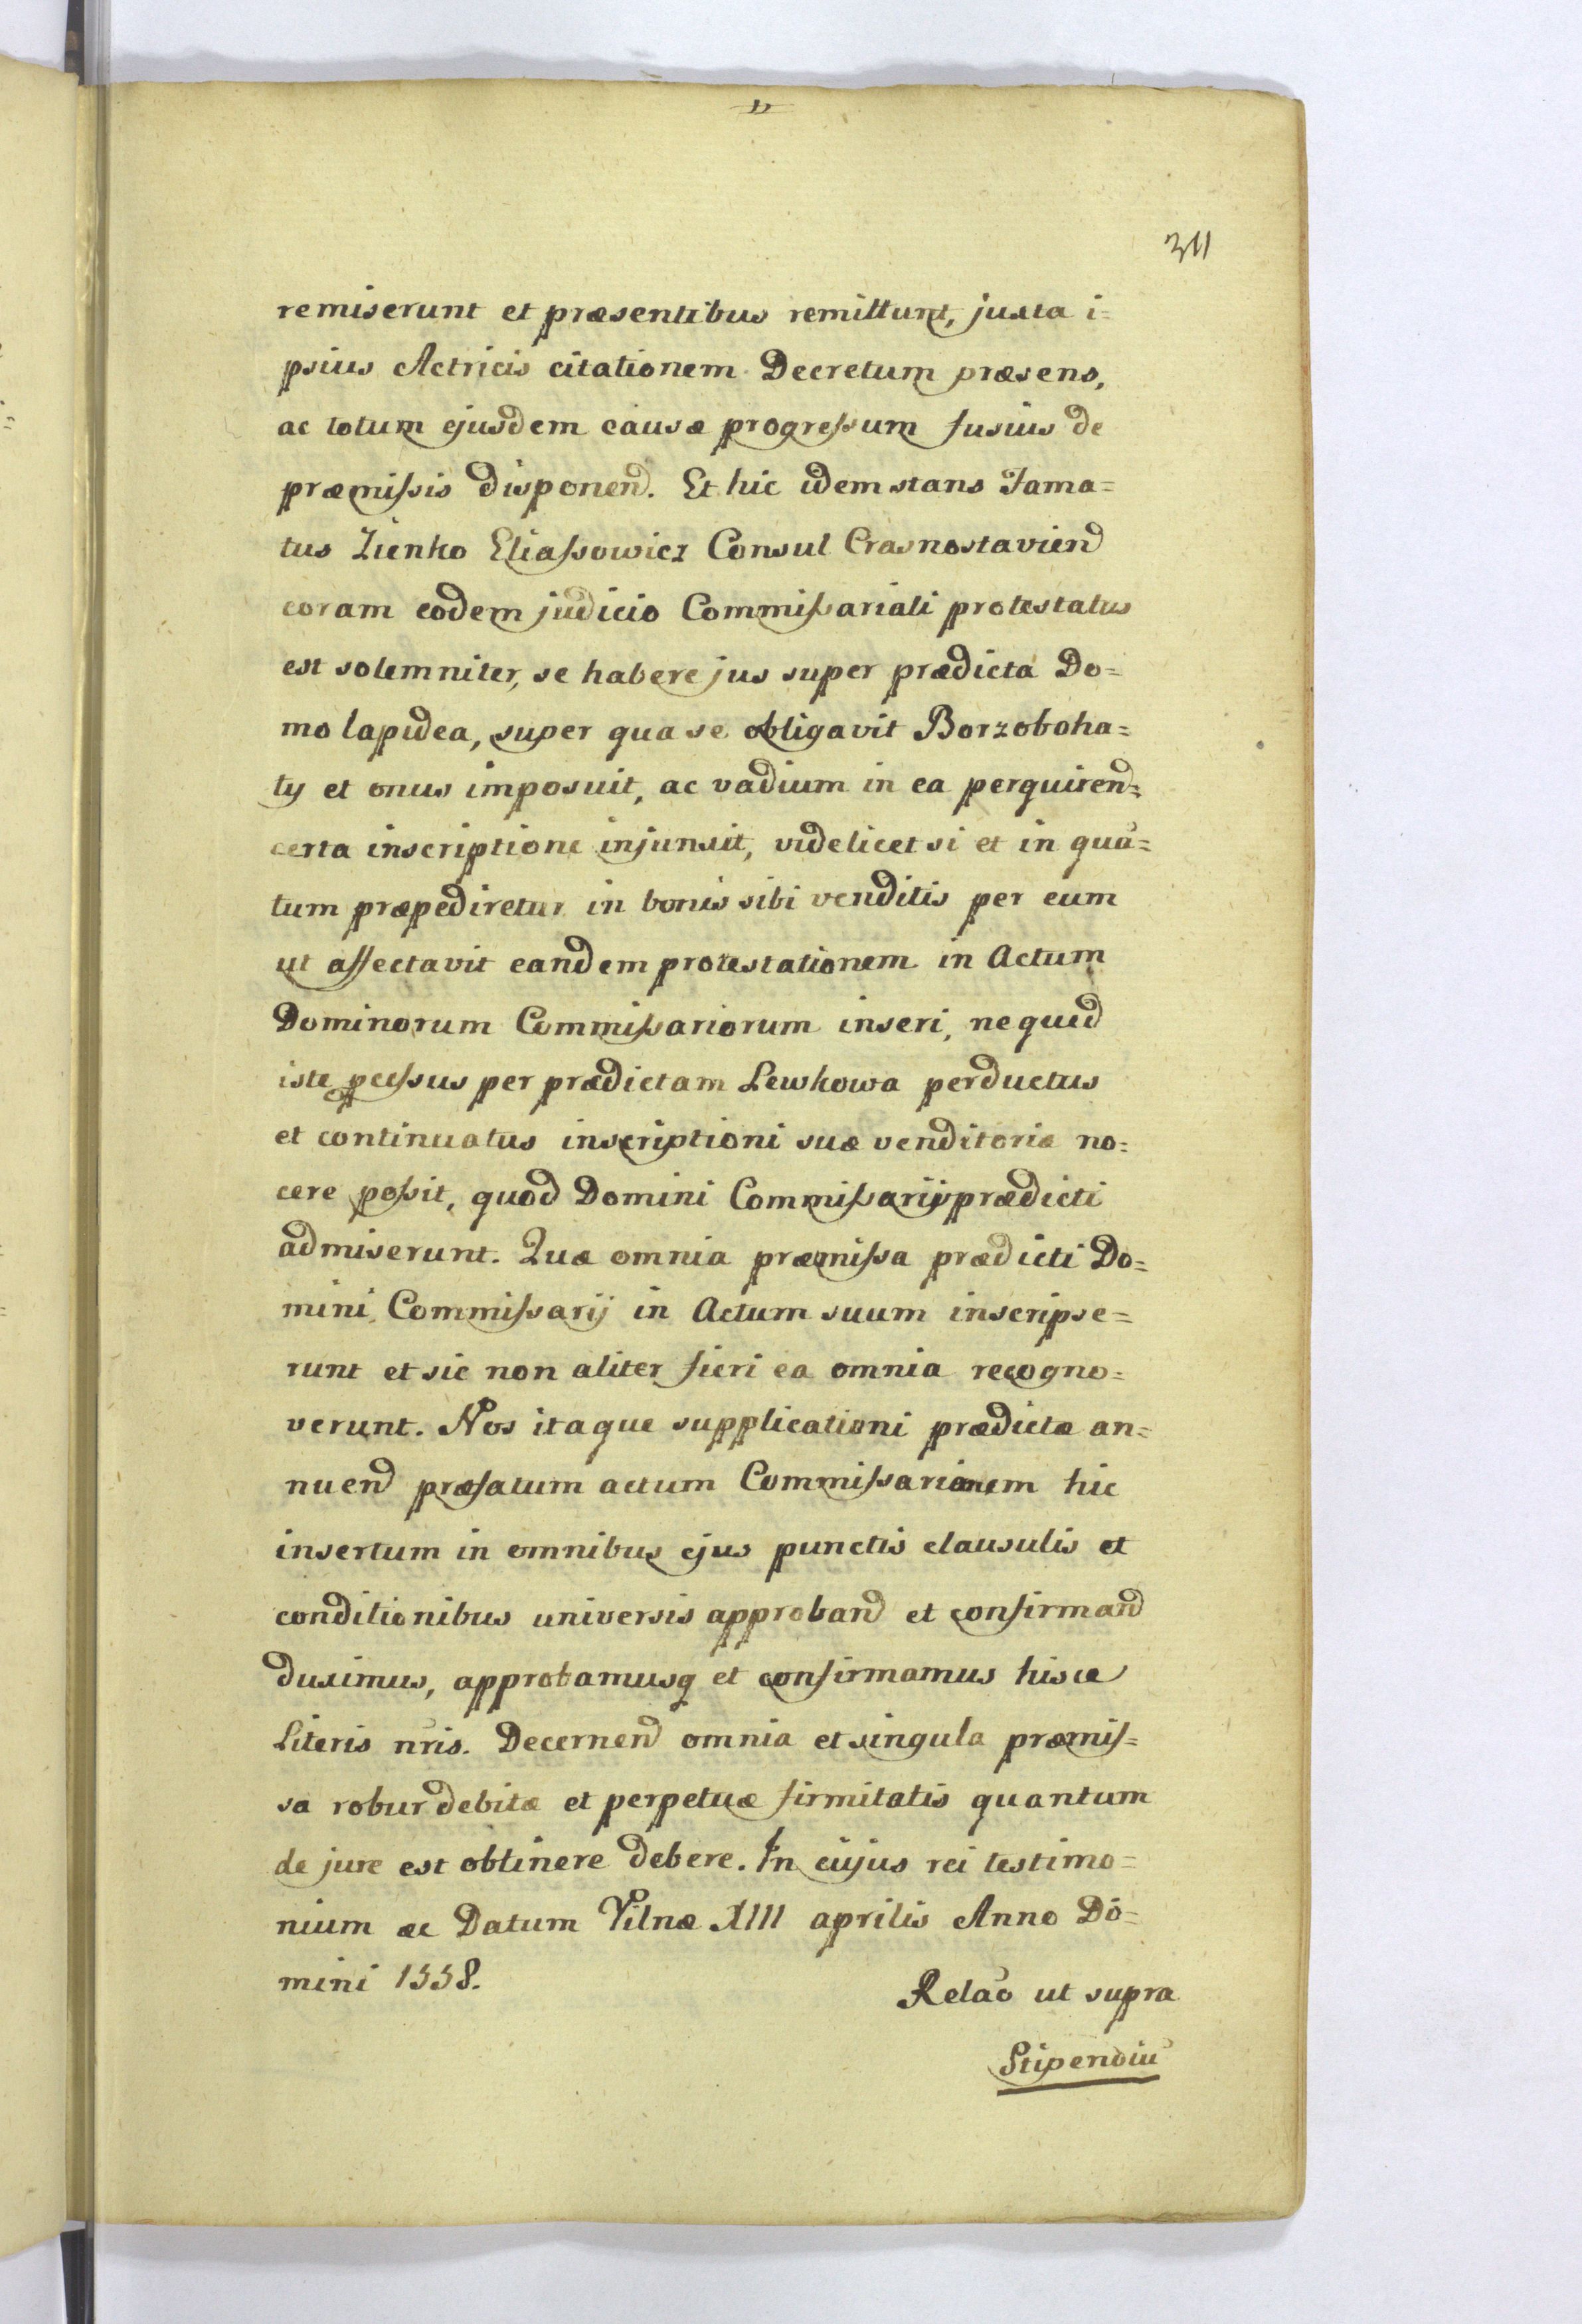 311
remiserunt et præsentibus remittunt, juxta i=
psius Actricis citationem Decretum præsens,
ac totum ejusdem causæ progressum fusius de
præmissis disponend. Et hic idem stans Fama=
tus Zienko Eliassowicz Consul Crasnostaviend
coram eodem judicio Commissariali protestatus
est solemniter, se habere jus super prædicta Do=
mo lapidea, super qua se obligavit Borzoboha=
ty et onus imposuit, ac vadium in ea perquiren=
certa inscriptione injunxit, videlicet si et in quā=
tum præpediretur in bonis sibi venditis per eum
ut affectavit eandem protestationem in Actum
Dominorum Commissariorum inseri, ne quid
iste pcessus per prædictam Lewkowa perductus
et continuatus inscriptioni suæ venditoriæ no=
cere possit, quod Domini Commissarij prædicti
admiserunt. Quæ omnia præmissa prædicti Do=
mini Commissarij in Actum suum inscripse=
runt et sic non aliter fieri ea omnia recogno=
verunt. Nos itaque supplicationi prædictæ an=
nuend præfatum actum Commissarionem hic
insertum in omnibus ejus punctis clausulis et
conditionibus universis approband et confirmand
duximus, approbamusq et confirmamus hisce
Literis nr̃is. Decernend omnia et singula præmis=
sa robur debitæ et perpetuæ firmitatis quantum
de jure est obtinere debere. In cujus rei testimo=
nium æc Datum Vilnæ XIII aprilis Anno Do=
mini 1558.
Relaõ ut supra
Stipendiū